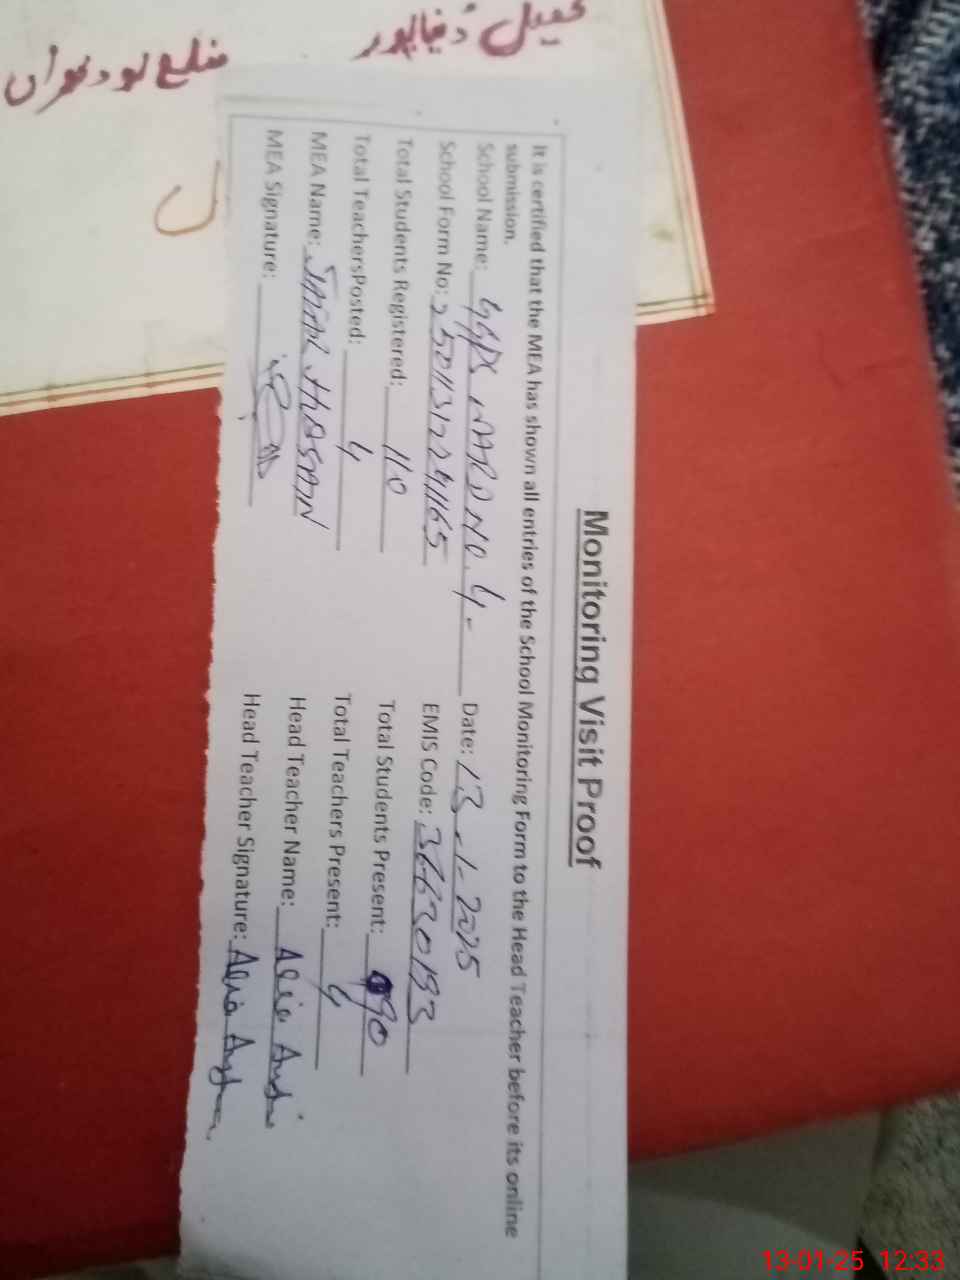 تحصیل دنیاپور ضلع لودھراں
Monitoring Visit Proof
It is certified that the MEA has shown all entries of the School Monitoring Form to the Head Teacher before its online
submission.
School Name: GGPS WARD NO. 4 - Date: 13-1-2025
School Form No: 250113122491165 EMIS Code: 36630193
Total Students Registered: 110 Total Students Present: 90
Total TeachersPosted: 4 Total Teachers Present: 4
MEA Name: HASAN Head Teacher Name:
MEA Signature: Head Teacher Signature:
13-01-25 12:33